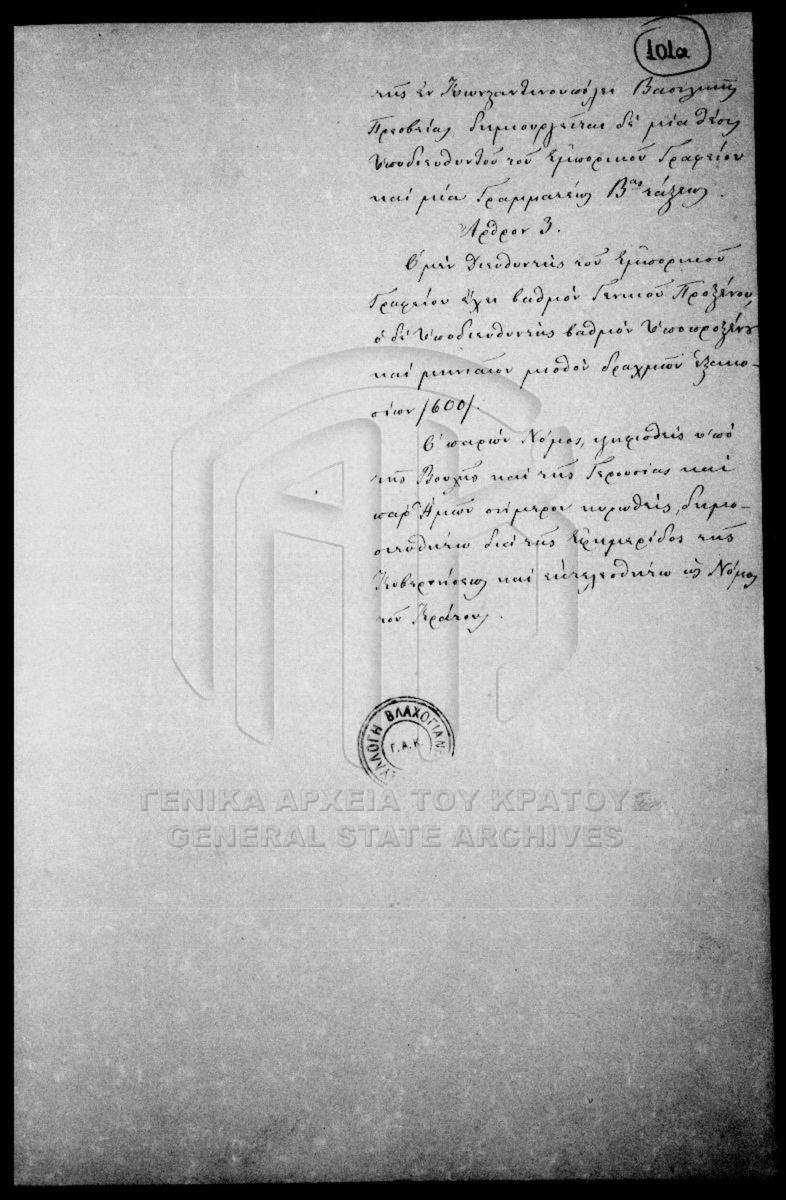 101α
τῆς ἐν Κωνσταντινουπόλει Βασιλικῆς
Πρεσβείας δημιουργεῖται δὲ μία θέσις
Ὑποδιευθυντοῦ τοῦ Ἐμπορικοῦ Γραφείου
καὶ μία Γραμματέως Βας τάξεως.
Ἄρθρον 3.
Ὁ μὲν Διευθυντὴς τοῦ Ἐμπορικοῦ
Γραφείου ἔχει βαθμὸν Γενικοῦ Προξένου,
ὁ δὲ Ὑποδιευθυντὴς βαθμὸν Ὑποπροξένου
καὶ μηνιαῖον μισθὸν δραχμῶν ἑξακο-
σίων /600/.
Ὁ παρὼν Νόμος, ψηφισθεὶς ὑπὸ
τῆς Βουλῆς καὶ τῆς Γερουσίας καὶ
παρ' Ἡμῶν σήμερον κυρωθείς, δημο-
σιευθήτω διὰ τῆς Ἐφημερίδος τῆς
Κυβερνήσεως καὶ ἐκτελεσθήτω ὡς Νόμος
τοῦ Κράτους.
ΣΥΛΛΟΓΗ ΒΛΑΧΟΓΙΑΝΝ
Γ.Α.Κ.
ΓΕΝΙΚΑ ΑΡΧΕΙΑ ΤΟΥ ΚΡΑΤΟΥΣ
GENERAL STATE ARCHIVES